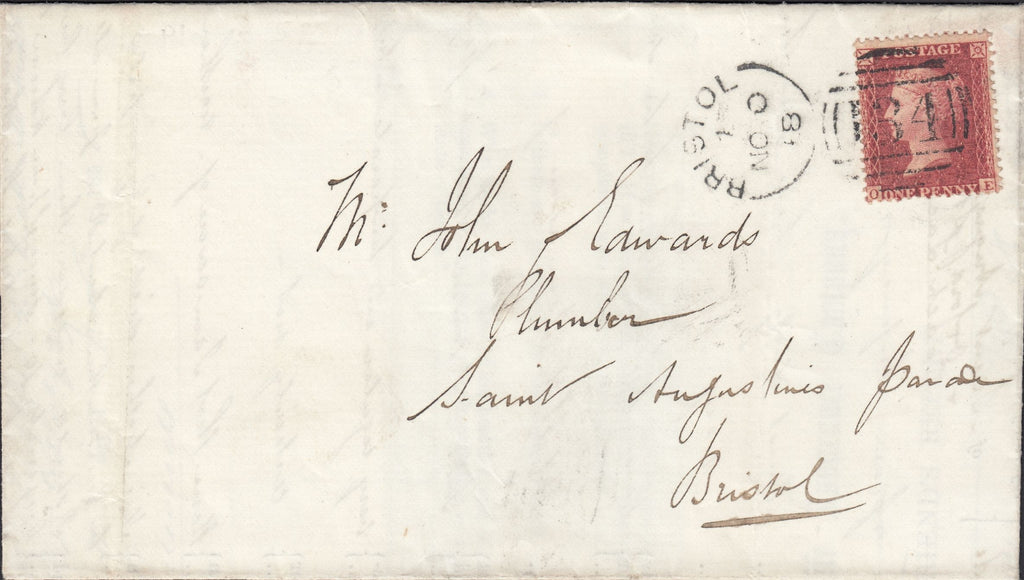 POSTAGE
134
O ONE PENNY E
BRISTOL
81
NO O
Mr: John Edwards
Plumber
Saint Augustines Parade
Bristol